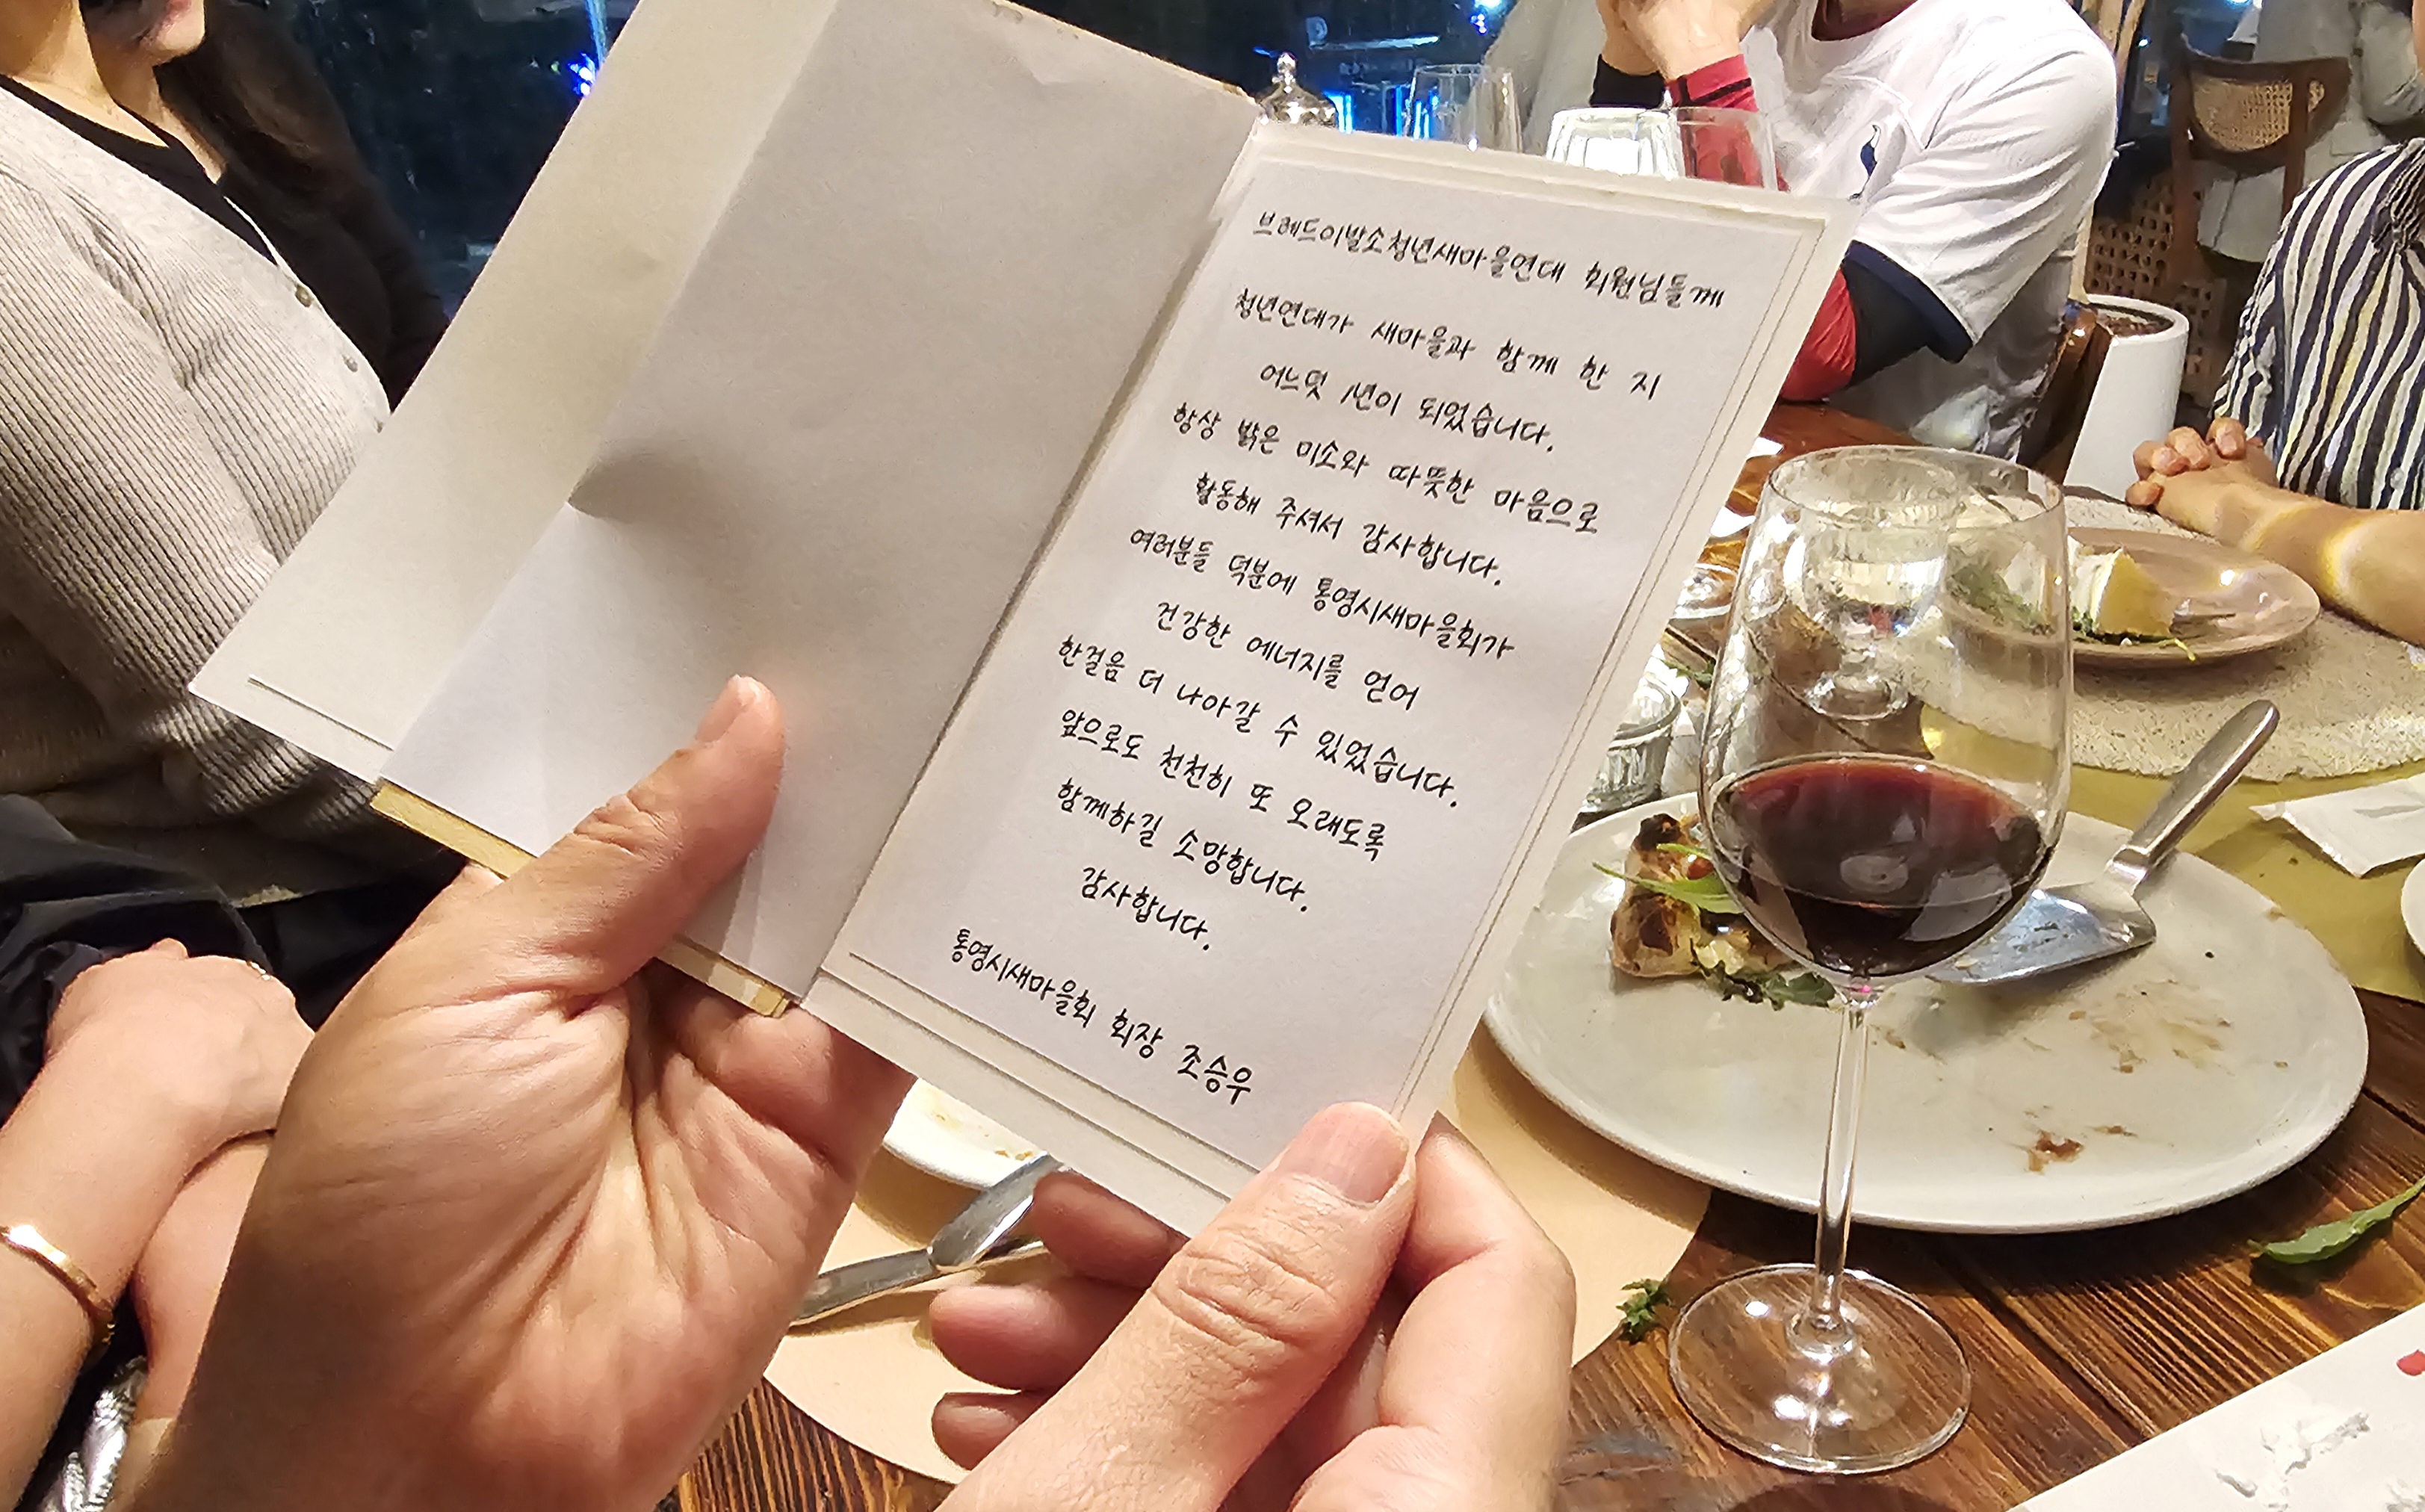 브레드이발소청년새마을연대 회원님들께
청년연대가 새마을과 함께 한 지
어느덧 1년이 되었습니다.
항상 밝은 미소와 따뜻한 마음으로
활동해 주셔서 감사합니다.
여러분들 덕분에 통영시새마을회가
건강한 에너지를 얻어
한걸음 더 나아갈 수 있었습니다.
앞으로도 천천히 또 오래도록
함께하길 소망합니다.
감사합니다.
통영시새마을회 회장 조승우